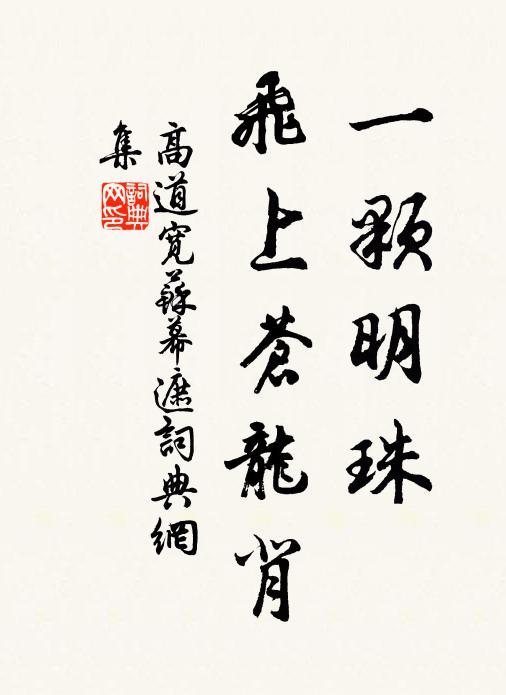 一顆明珠
飛上蒼龍背
高道寬蘇幕遮詞典網
集
詞典
网印